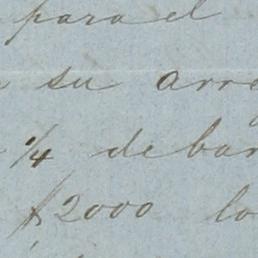 para el
su arre
1/4 de bar
$2000 lo